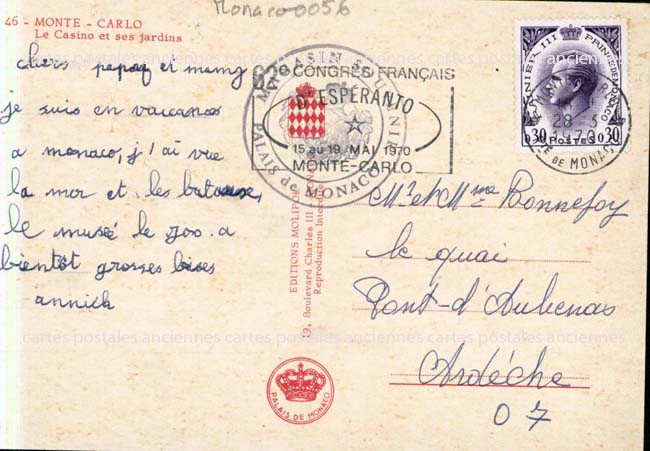 Monaco0056
46 - MONTE - CARLO
Le Casino et ses jardins
chers papaz et mamy
je suis en vaccanses
a monaco, j'ai vue
la mer et les bateaux,
le musée le zoo. a
bientôt grosses bises
annick
MAGASIN SOUVENIR
PALAIS de MONACO
62e CONGRÈS FRANÇAIS
D'ESPÉRANTO
15 au 19 MAI 1970
MONTE-CARLO
RAINIER III PRINCE DE MONACO
0.30 POSTES 0.30
EDITIONS MOLIPOR
19, Boulevard Charles III
Reproduction Interdite
Mr et Mme Bonnefoy
le quai
Pont-d'Aubenas
Ardèche
07
PALAIS DE MONACO
cartes postales anciennes cartes postales anciennes cartes postales anciennes
cartes postales anciennes cartes postales anciennes cartes postales anciennes